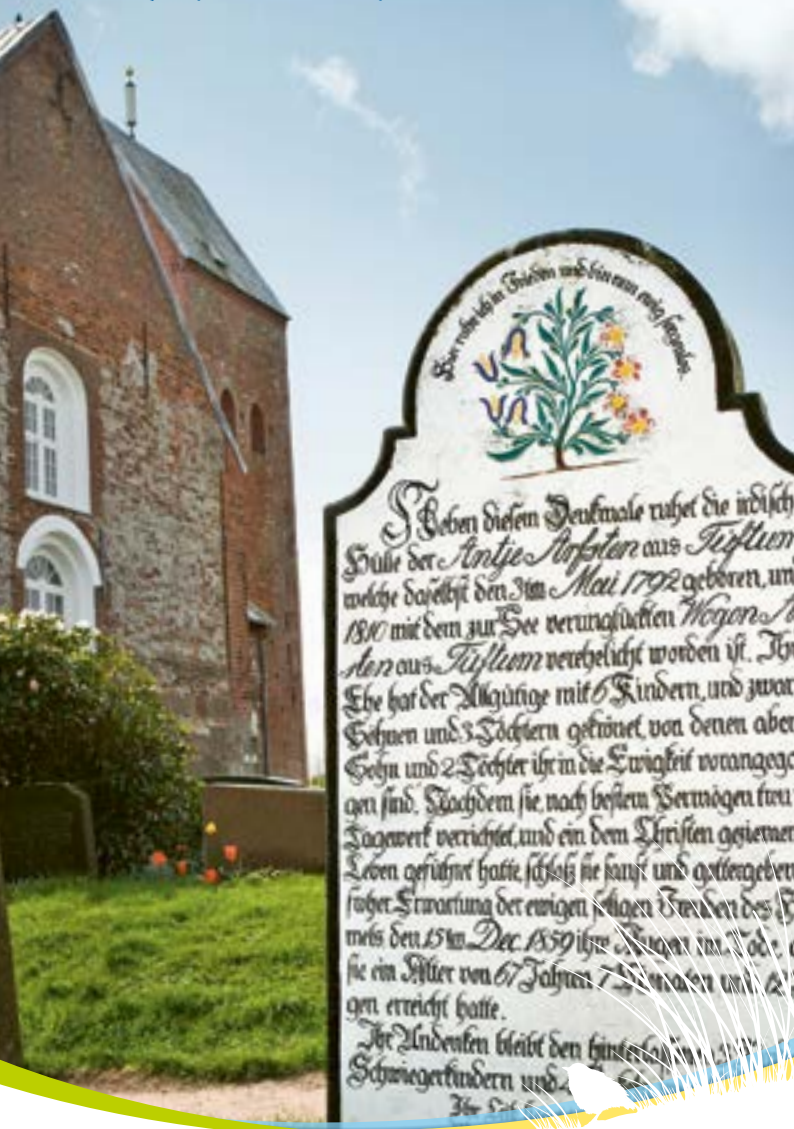 Hier ruhe ich in Frieden und bin nun ewig
Neben diesem Denkmale ruhet die irdisch
Hülle der Antje Arfsten aus Tüftum
welche daselbst den 3ten Mai 1792 geboren, un
1810 mit dem zur See verunglückten Wogon A
sten aus Tüftum verehelicht worden ist. Ihr
Ehe hat der Allgütige mit 6 Kindern, und zwar
Söhnen und 3 Töchtern gekrönet, von denen aber
Sohn und 2 Töchter ihr in die Ewigkeit vorangega
gen sind. Nachdem sie nach bestem Vermögen treu
Tagewerk verrichtet, und ein dem Christen geziemen
Leben geführet hatte, schloß sie sanft und gottergeben
froher Erwartung der ewigen seligen Freuden des H
mels den 15ten Dec. 1859 ihre Augen im Tode,
sie ein Alter von 67 Jahren 7 Monaten und 12
gen erreicht hatte.
Ihr Andenken bleibt den
Schwiegerkindern und